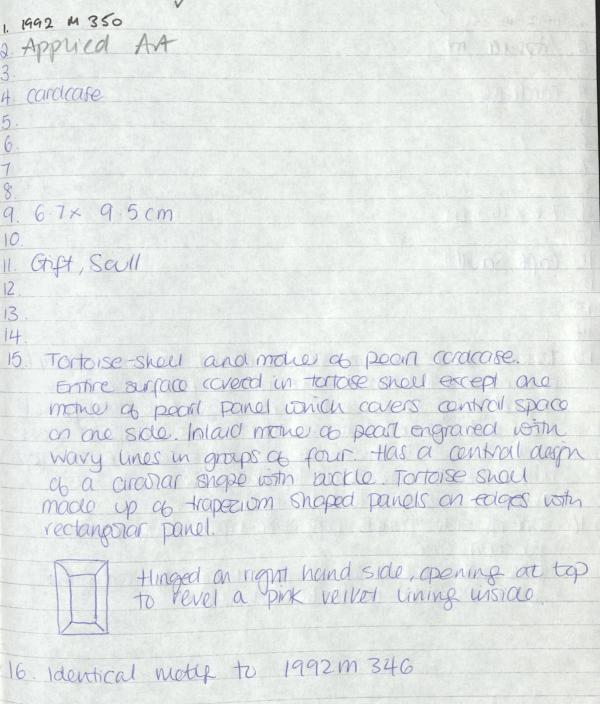 1. 1992 M 350
2. Applied Art
3.
4. Cardcase
5.
6.
7
8.
9. 6.7 x 9.5 cm
10.
11. Gift, Scull
12.
13.
14.
15. Tortoise-shell and mother of pearl cardcase.
Entire surface covered in tortoise shell except one
mother of pearl panel which covers central space
on one side. Inlaid mother of pearl engraved with
wavy lines in groups of four. Has a central design
of a circular shape with buckle. Tortoise shell
made up of trapezium shaped panels on edges with
rectangular panel.
Hinged on right hand side, opening at top
to revel a pink velvet lining inside.
16. Identical motif to 1992 M 346